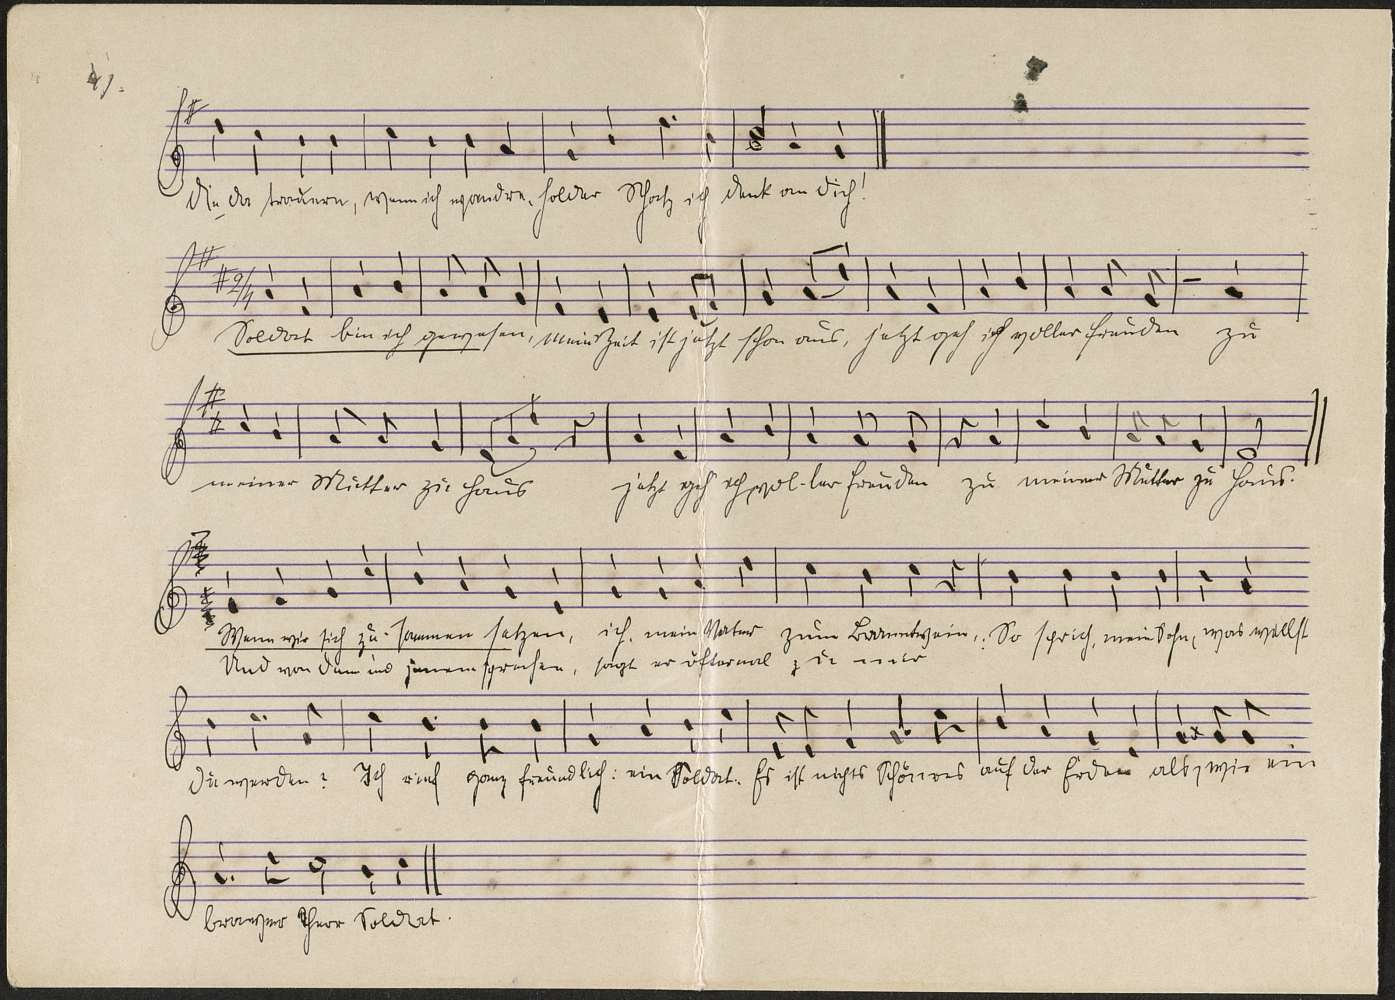 4).
die da trauern, wenn ich wandre, holder Schatz ich denk an dich!
2/4
Soldat bin ich gewesen, mein Zeit ist jetzt schon aus, jetzt geh ich voller Freuden zu
meiner Mutter zu Haus jetzt geh ich vol-ler Freuden zu meiner Mutter zu Haus.
Wenn wir sich zu-sammen setzen, ich, mein Vater zum Branntwein, So sprich, mein Sohn, was willst
Und von dem und jenem sprechen, sagt er öftermal zu mir
du werden? Ich rief ganz freundlich: ein Soldat. Es ist nichts Schöneres auf der Erden als wie ein
braver Herr Soldat.